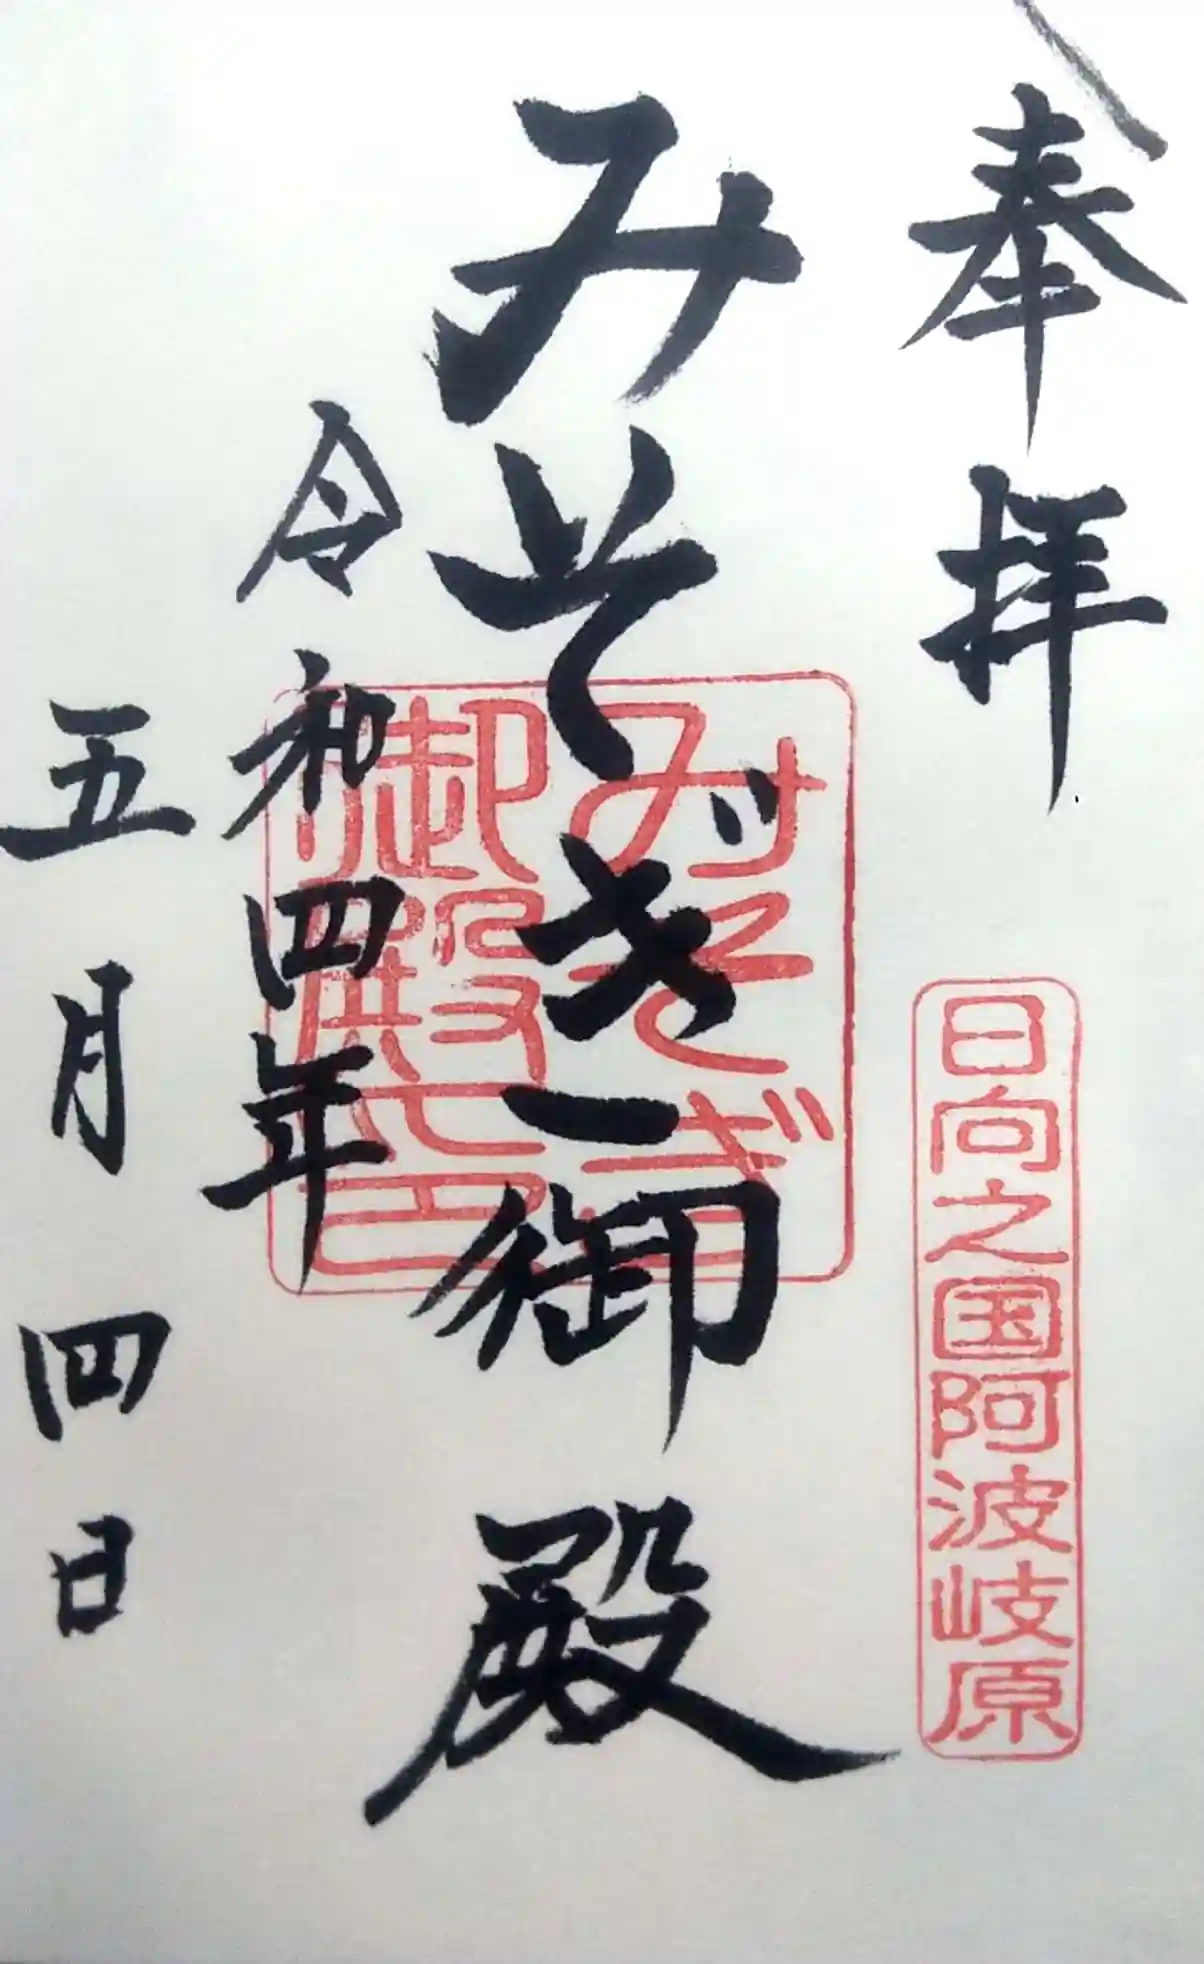 奉拝
日向之国阿波岐原
みそぎ御殿
みそぎ
御殿之印
令和四年
五月四日